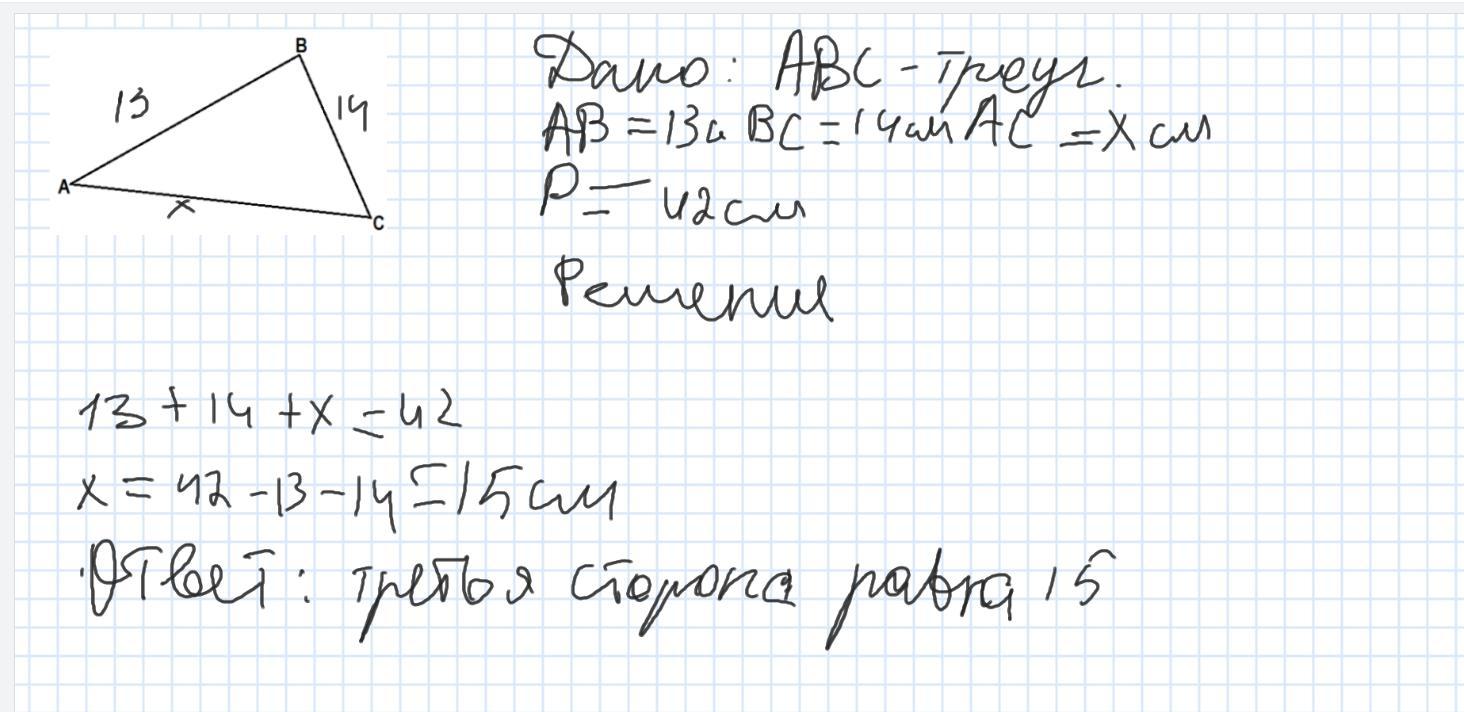 B
13
14
A
x
C
Дано: ABC - треуг.
AB = 13см BC = 14см AC = x см
P = 42см
Решение
13 + 14 + x = 42
x = 42 - 13 - 14 = 15 см
Ответ: третья сторона равна 15